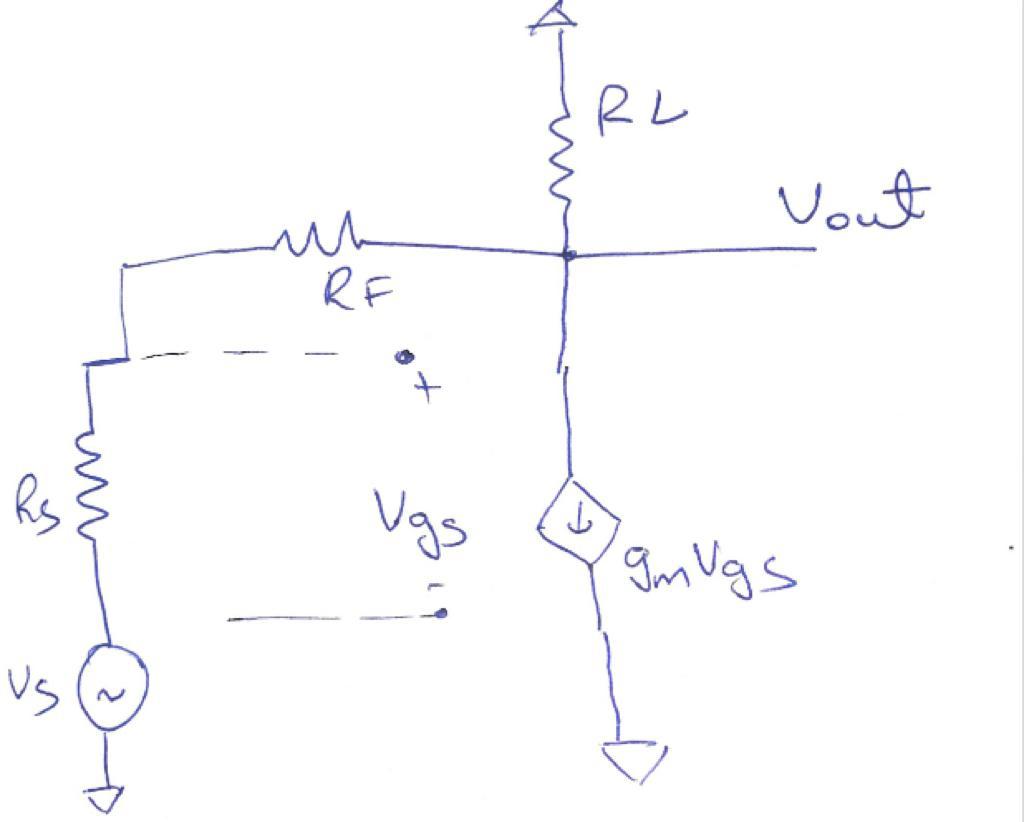 RL
Vout
RF
+
Rs
Vgs
-
gmVgs
Vs
~